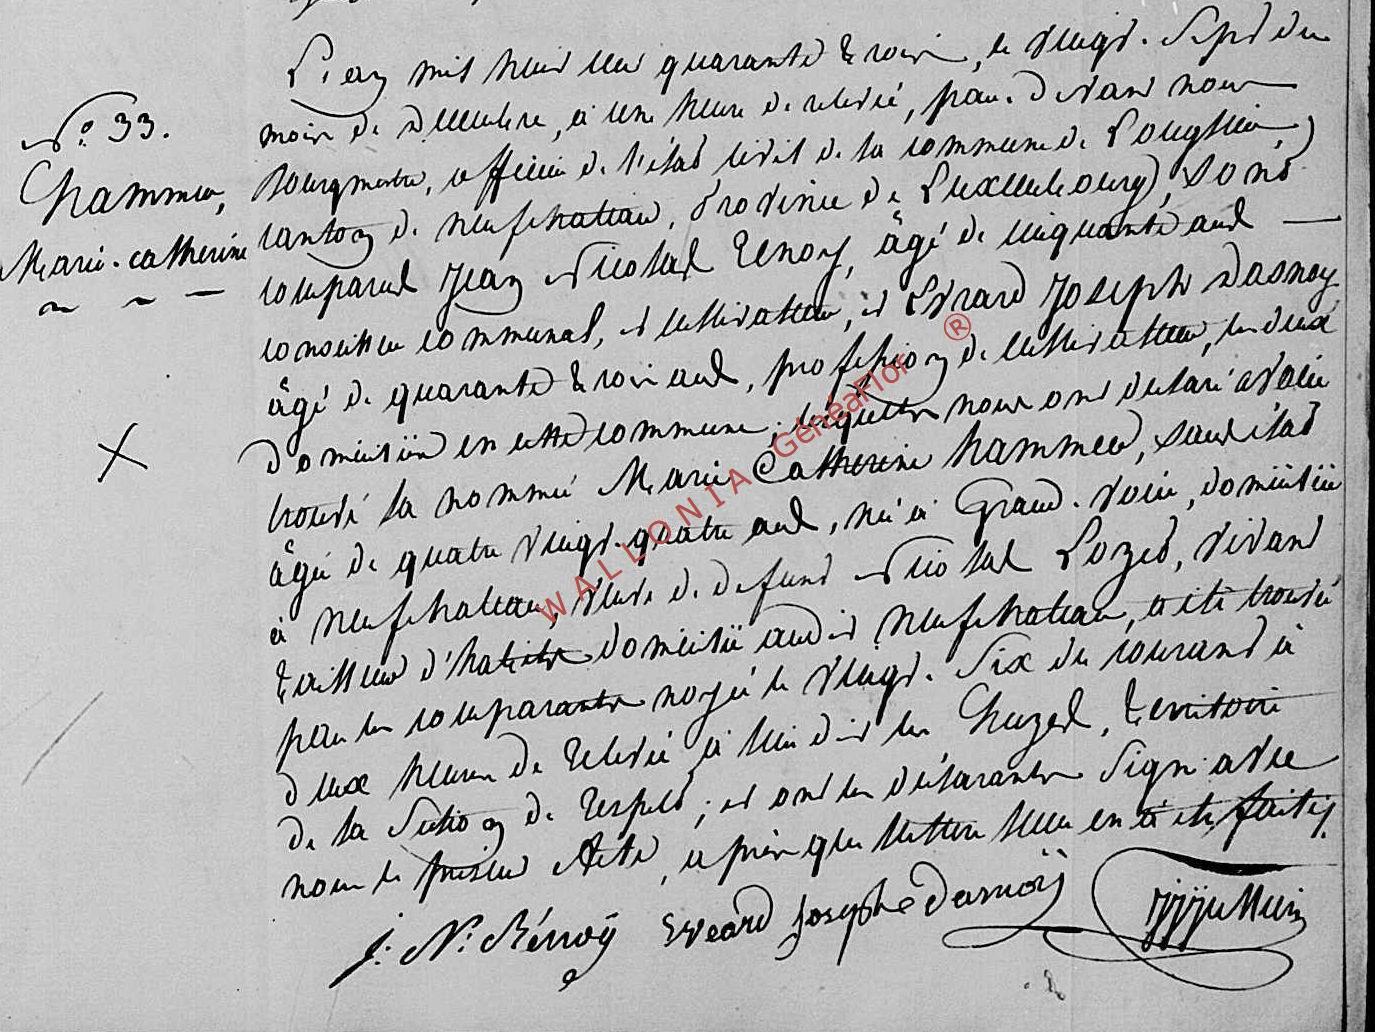 N.° 33.
Chammeu,
Marie-catherine
L'an mil huit cent quarante trois, le vingt-sept du
mois de décembre, à une heure de relevée, par-devant nous
Bourgmestre, officier de l'état civil de la commune de Longlier,
canton de neufchateau, province de Luxembourg, sont
comparus Jean Nicolas Renoy, âgé de cinquante ans
conseiller communal, et cultivateur, et Evrard Joseph Dasnoy
âgé de quarante trois ans, profession de cultivateur, les deux
domiciliés en cette commune; lesquels nous ont déclaré avoir
trouvé la nommée Marie Catherine hammeu, sans état
âgée de quatre vingt-quatre ans, née à Grand-voir, domiciliée
à neufchateau, veuve de defunt Nicolas Pozet, vivant
tailleur d'habits domicilié audit neufchateau, a été trouvée
par les comparants noyée le vingt-six du courant à
deux heures de relevée à lieu dit les, territoire
de la section de Respelt; et ont les déclarants signé avec
nous le présent Acte, après que lecture leur en a été faite.
J: N: Rénoÿ Evrard Joseph Dasnoÿ
WALLONIA GénéaFlor ®